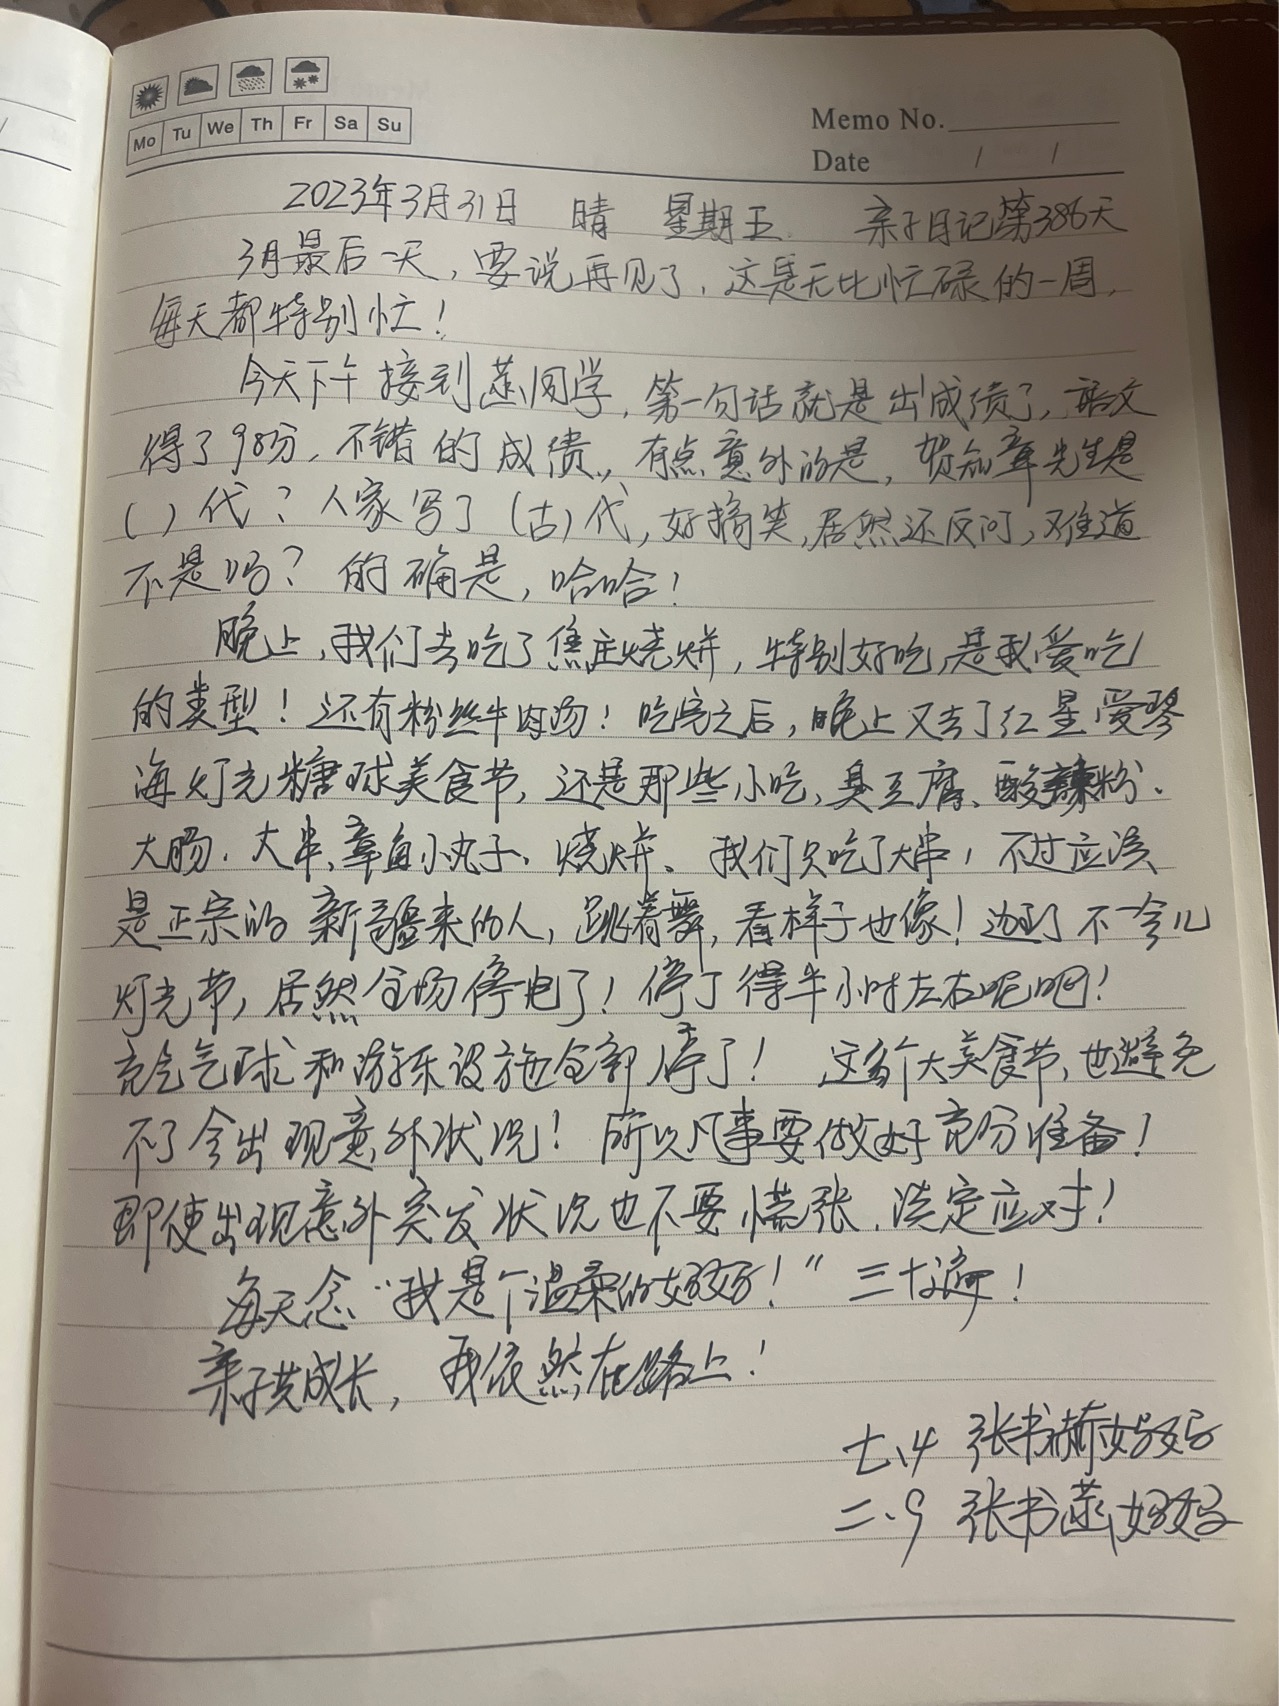 Mo Tu We Th Fr Sa Su
Memo No.
Date / /
2023年3月31日 晴 星期五 亲子日记第386天
3月最后一天，要说再见了，这是无比忙碌的一周，
每天都特别忙！
今天下午接到菡同学，第一句话就是出成绩了，语文
得了98分，不错的成绩，有点意外的是，贺知章先生是
( )代？人家写了(古)代，好搞笑，居然还反问，难道
不是吗？的确是，哈哈！
晚上，我们去吃了焦庄烧饼，特别好吃，是我爱吃
的类型！还有粉丝牛肉汤！吃完之后，晚上又去了红星爱琴
海灯光糖球美食节，还是那些小吃，臭豆腐、酸辣粉、
大肠、大串、章鱼小丸子、烧饼。我们只吃了大串，不过应该
是正宗的新疆来的人，跳着舞，看样子也像！逛了不一会儿
灯光节，居然全场停电了！停了得半小时左右呢吧！
充气气球和游乐设施全部停了！这么个大美食节，也避免
不了会出现意外状况！所以凡事要做好充分准备！
即使出现意外突发状况也不要慌张，淡定应对！
每天念“我是个温柔的好妈妈！”三十遍！
亲子共成长，我依然在路上！
七、4 张书赫妈妈
二、9 张书菡妈妈